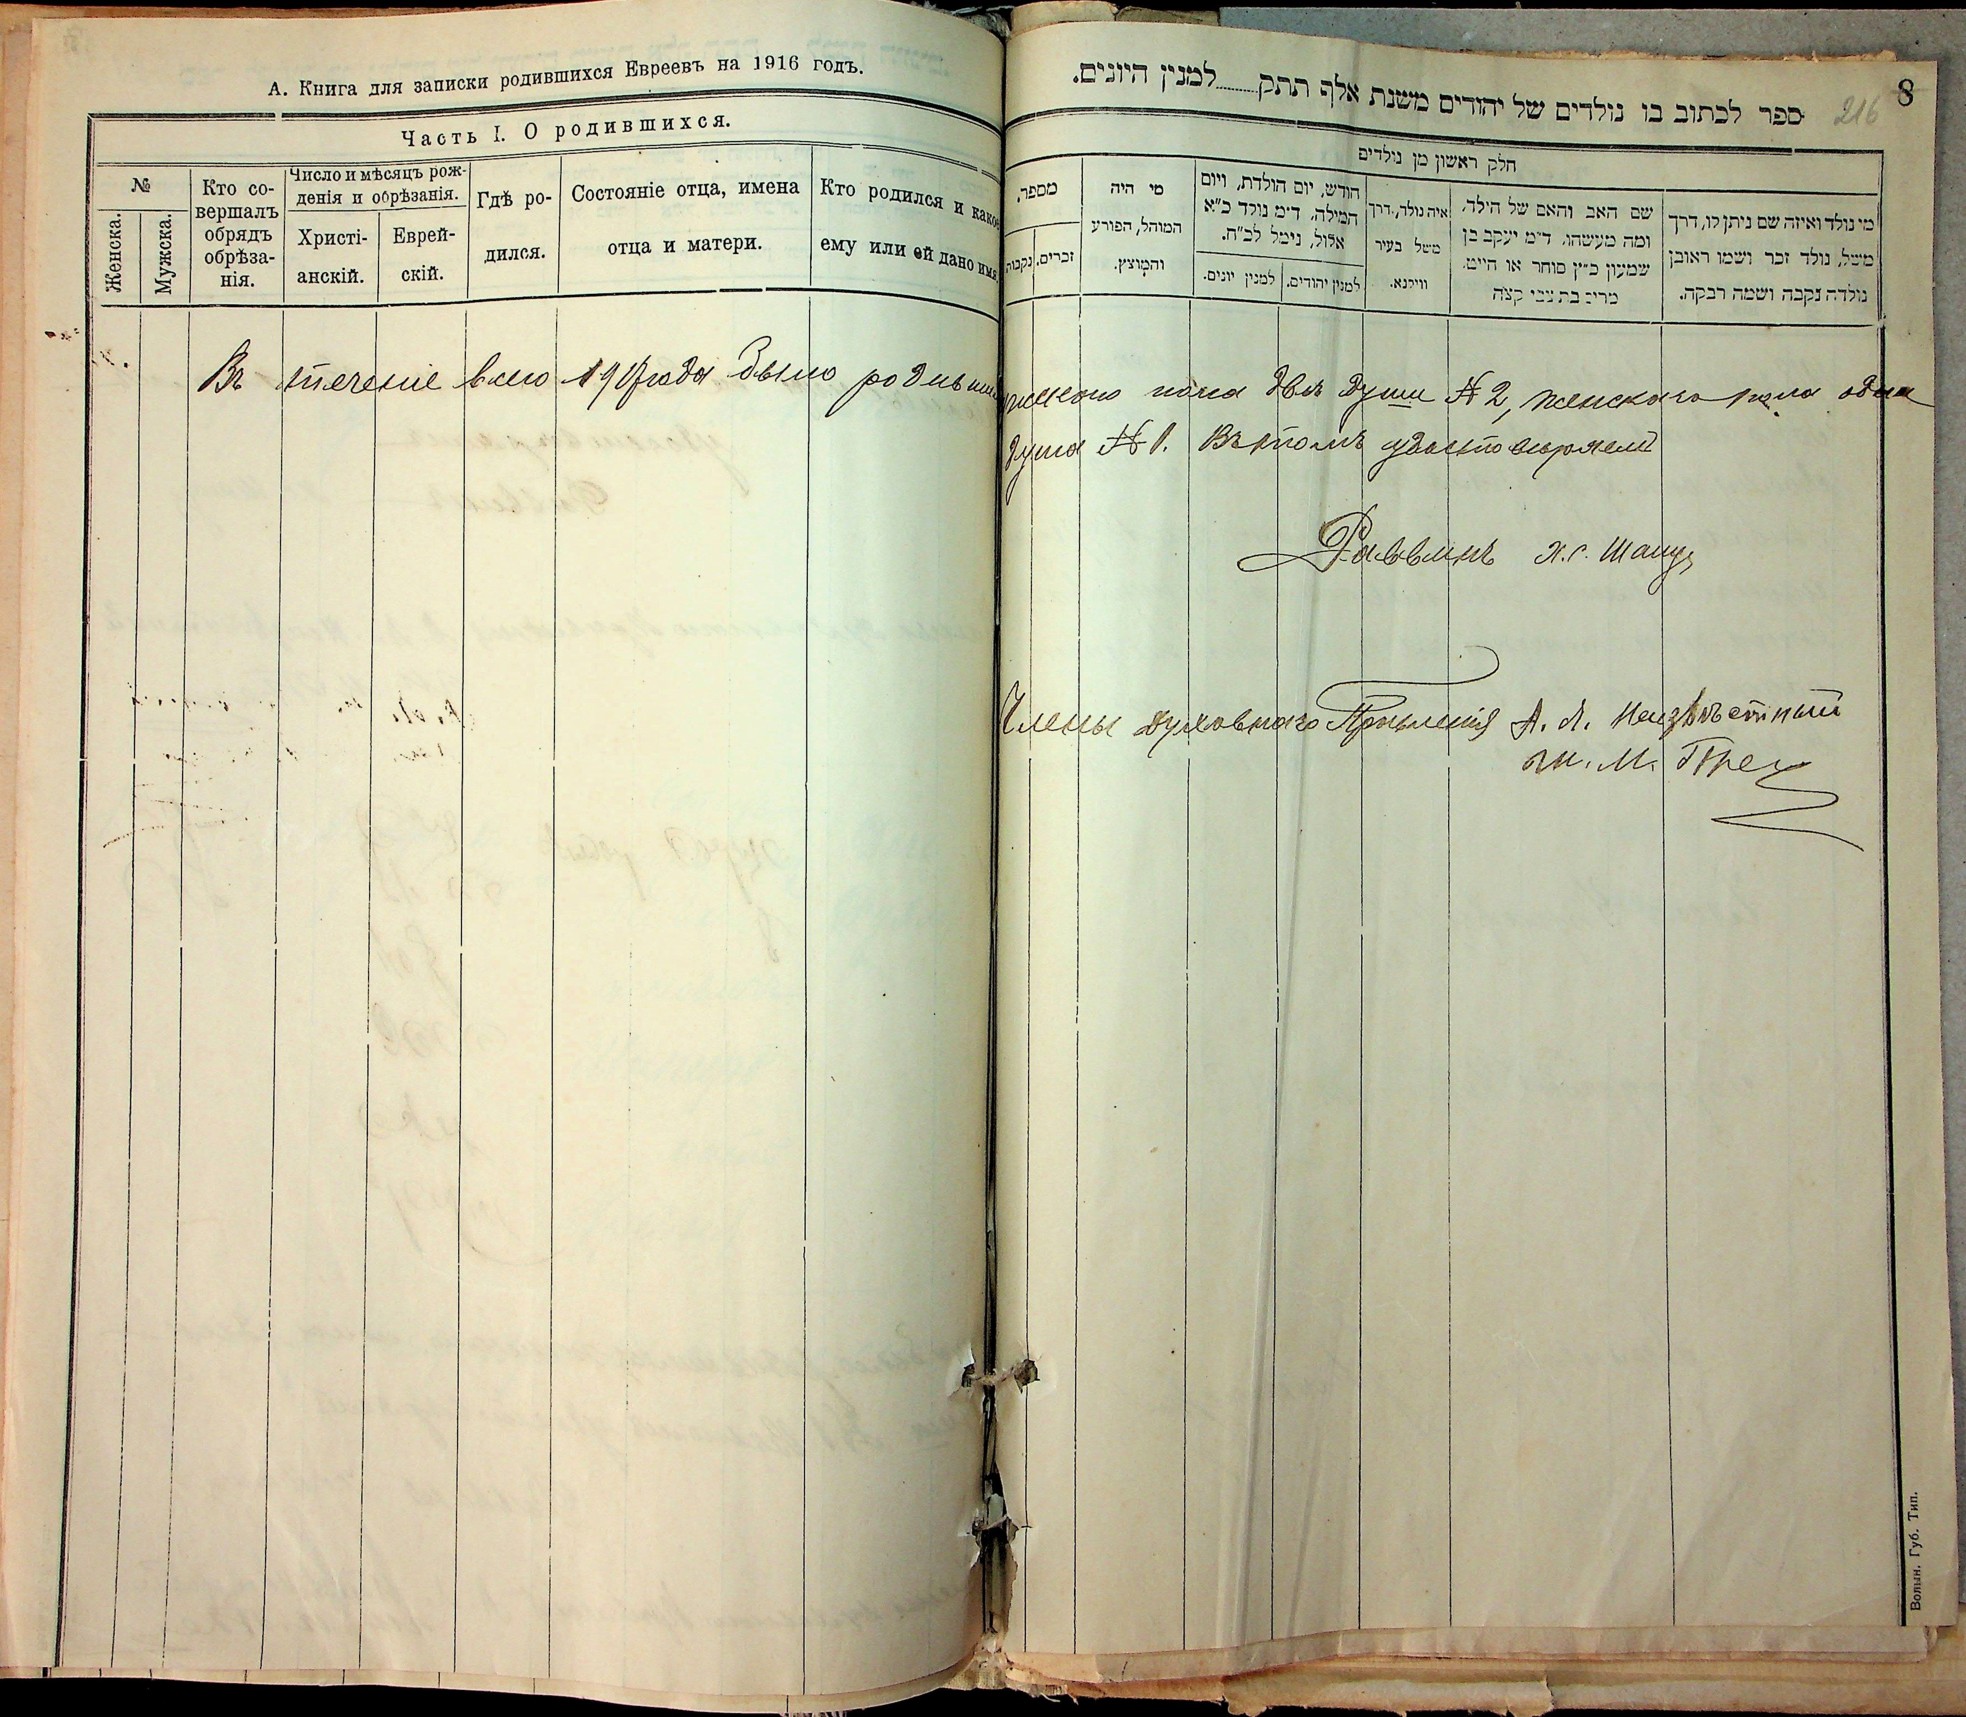 А. Книга для записки родившихся Евреевъ на 1916 годъ.
Часть I. О родившихся.
№
Женска.
Мужска.
Кто со-
вершалъ
обрядъ
обрѣза-
нія.
Число и мѣсяцъ рож-
денія и обрѣзанія.
Христі-
анскій.
Еврей-
скій.
Гдѣ ро-
дился.
Состояніе отца, имена
отца и матери.
Кто родился и какое
ему или ей дано имя.
ספר לכתוב בו נולדים של יהודים משנת אלף תתק........למנין היונים.
216
8
חלק ראשון מן נולדים
מספר.
זכרים.
נקבות
מי היה
המוהל, הפורע
והמוצץ.
חודש, יום הולדת, ויום
המילה, ד״מ נולד כ״א
אלול, נימל לכ״ח.
למנין יהודים.
למנין יונים.
איה נולד, דרך
משל בעיר
ווילנא.
שם האב והאם של הילד,
ומה מעשהו, ד״מ יעקב בן
שמעון כ״ץ סוחר או חייט,
מרים בת צבי קצה
מי נולד ואיזה שם ניתן לו, דרך
משל, נולד זכר ושמו ראובן
נולדה נקבה ושמה רבקה.
Въ теченіе всего года было родивших
пола двѣ души № 2, женскаго пола одна
душа № 1. Въ томъ удостовѣряемъ
Раввинъ
Члены Духовнаго Правленія А. Л. Неизвѣстный
Волын. Губ. Тип.